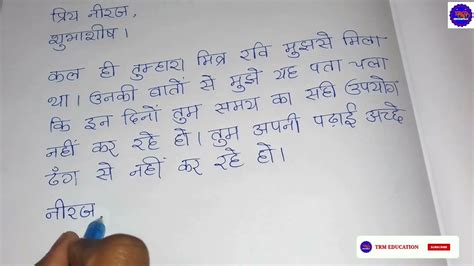 प्रिय नीरज,
शुभाशीष।
कल ही तुम्हारा मित्र रवि मुझसे मिला
था। उनकी बातों से मुझे यह पता चला
कि इन दिनों तुम समय का सही उपयोग
नहीं कर रहे हो। तुम अपनी पढ़ाई अच्छे
ढंग से नहीं कर रहे हो।
नीरज
TRM EDUCATION